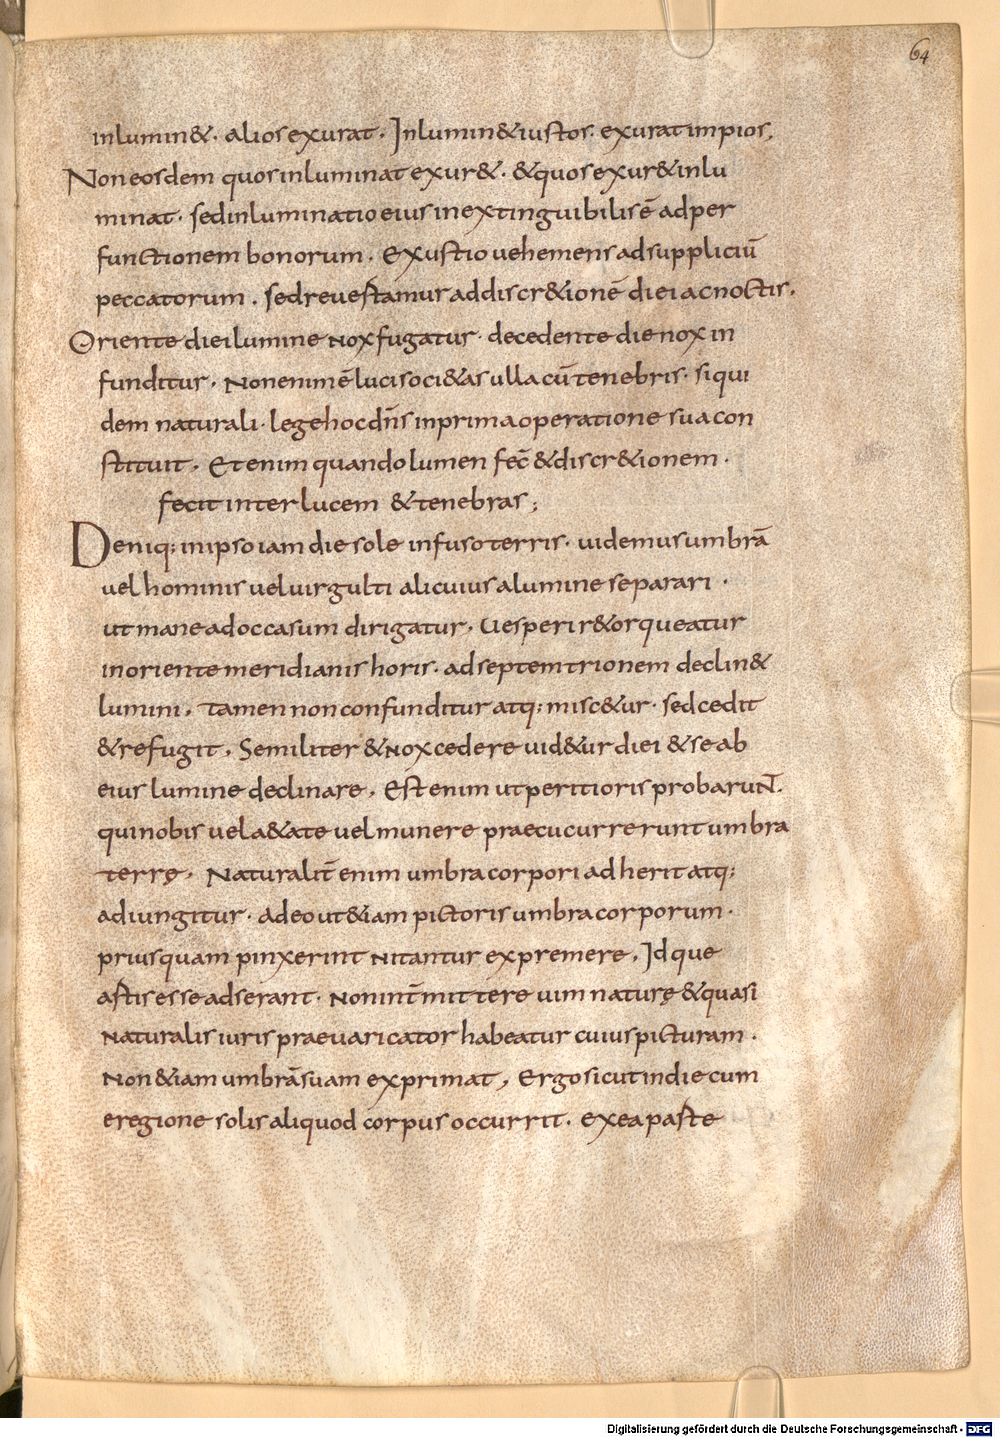 64
inlumin&. alios exurat. Inlumin& iustos. exurat impios,
Non eosdem quos inluminat exur&. & quos exur& inlu
minat. sed inluminatio eius inextinguibilis ē ad per
functionem bonorum. Exustio uehemens ad suppliciū
peccatorum. sed reuertamur ad discr&ionē diei ac noctis.
Oriente diei lumine nox fugatur. decedente die nox in
funditur. Non enim ē luci soci&as ulla cū tenebris. siqui
dem naturali. lege hoc dn̄s in prima operatione sua con
stituit. Et enim quando lumen fec̄ & discr&ionem.
fecit inter lucem & tenebras;
Deniq; in ipso iam die sole infuso terris. uidemus umbrā
uel hominis uel uirgulti alicuius a lumine separari.
ut mane ad occasum dirigatur. Uesperi r&orqueatur
in oriente meridianis horis. ad septemtrionem declin&
lumini. tamen non confunditur atq; misc&ur. sed cedit
& refugit. Semiliter & nox cedere uid&ur diei & se ab
eius lumine declinare. Est enim ut peritioris probarunt̄.
qui nobis uel a&ate uel munere praecucurrerunt umbra
terrę. Naturalit̄ enim umbra corpori adherit atq;
adiungitur. adeo ut &iam pictoris umbra corporum.
priusquam pinxerint nitantur expremere. Idque
astis esse adserant. non int̄mittere uim naturę & quasi
naturalis iuris praeuaricator habeatur cuius picturam.
Non &iam umbrā suam exprimat, Ergo sicut in die cum
e regione solis aliquod corpus occurrit. ex ea paste
Digitalisierung gefördert durch die Deutsche Forschungsgemeinschaft - DFG